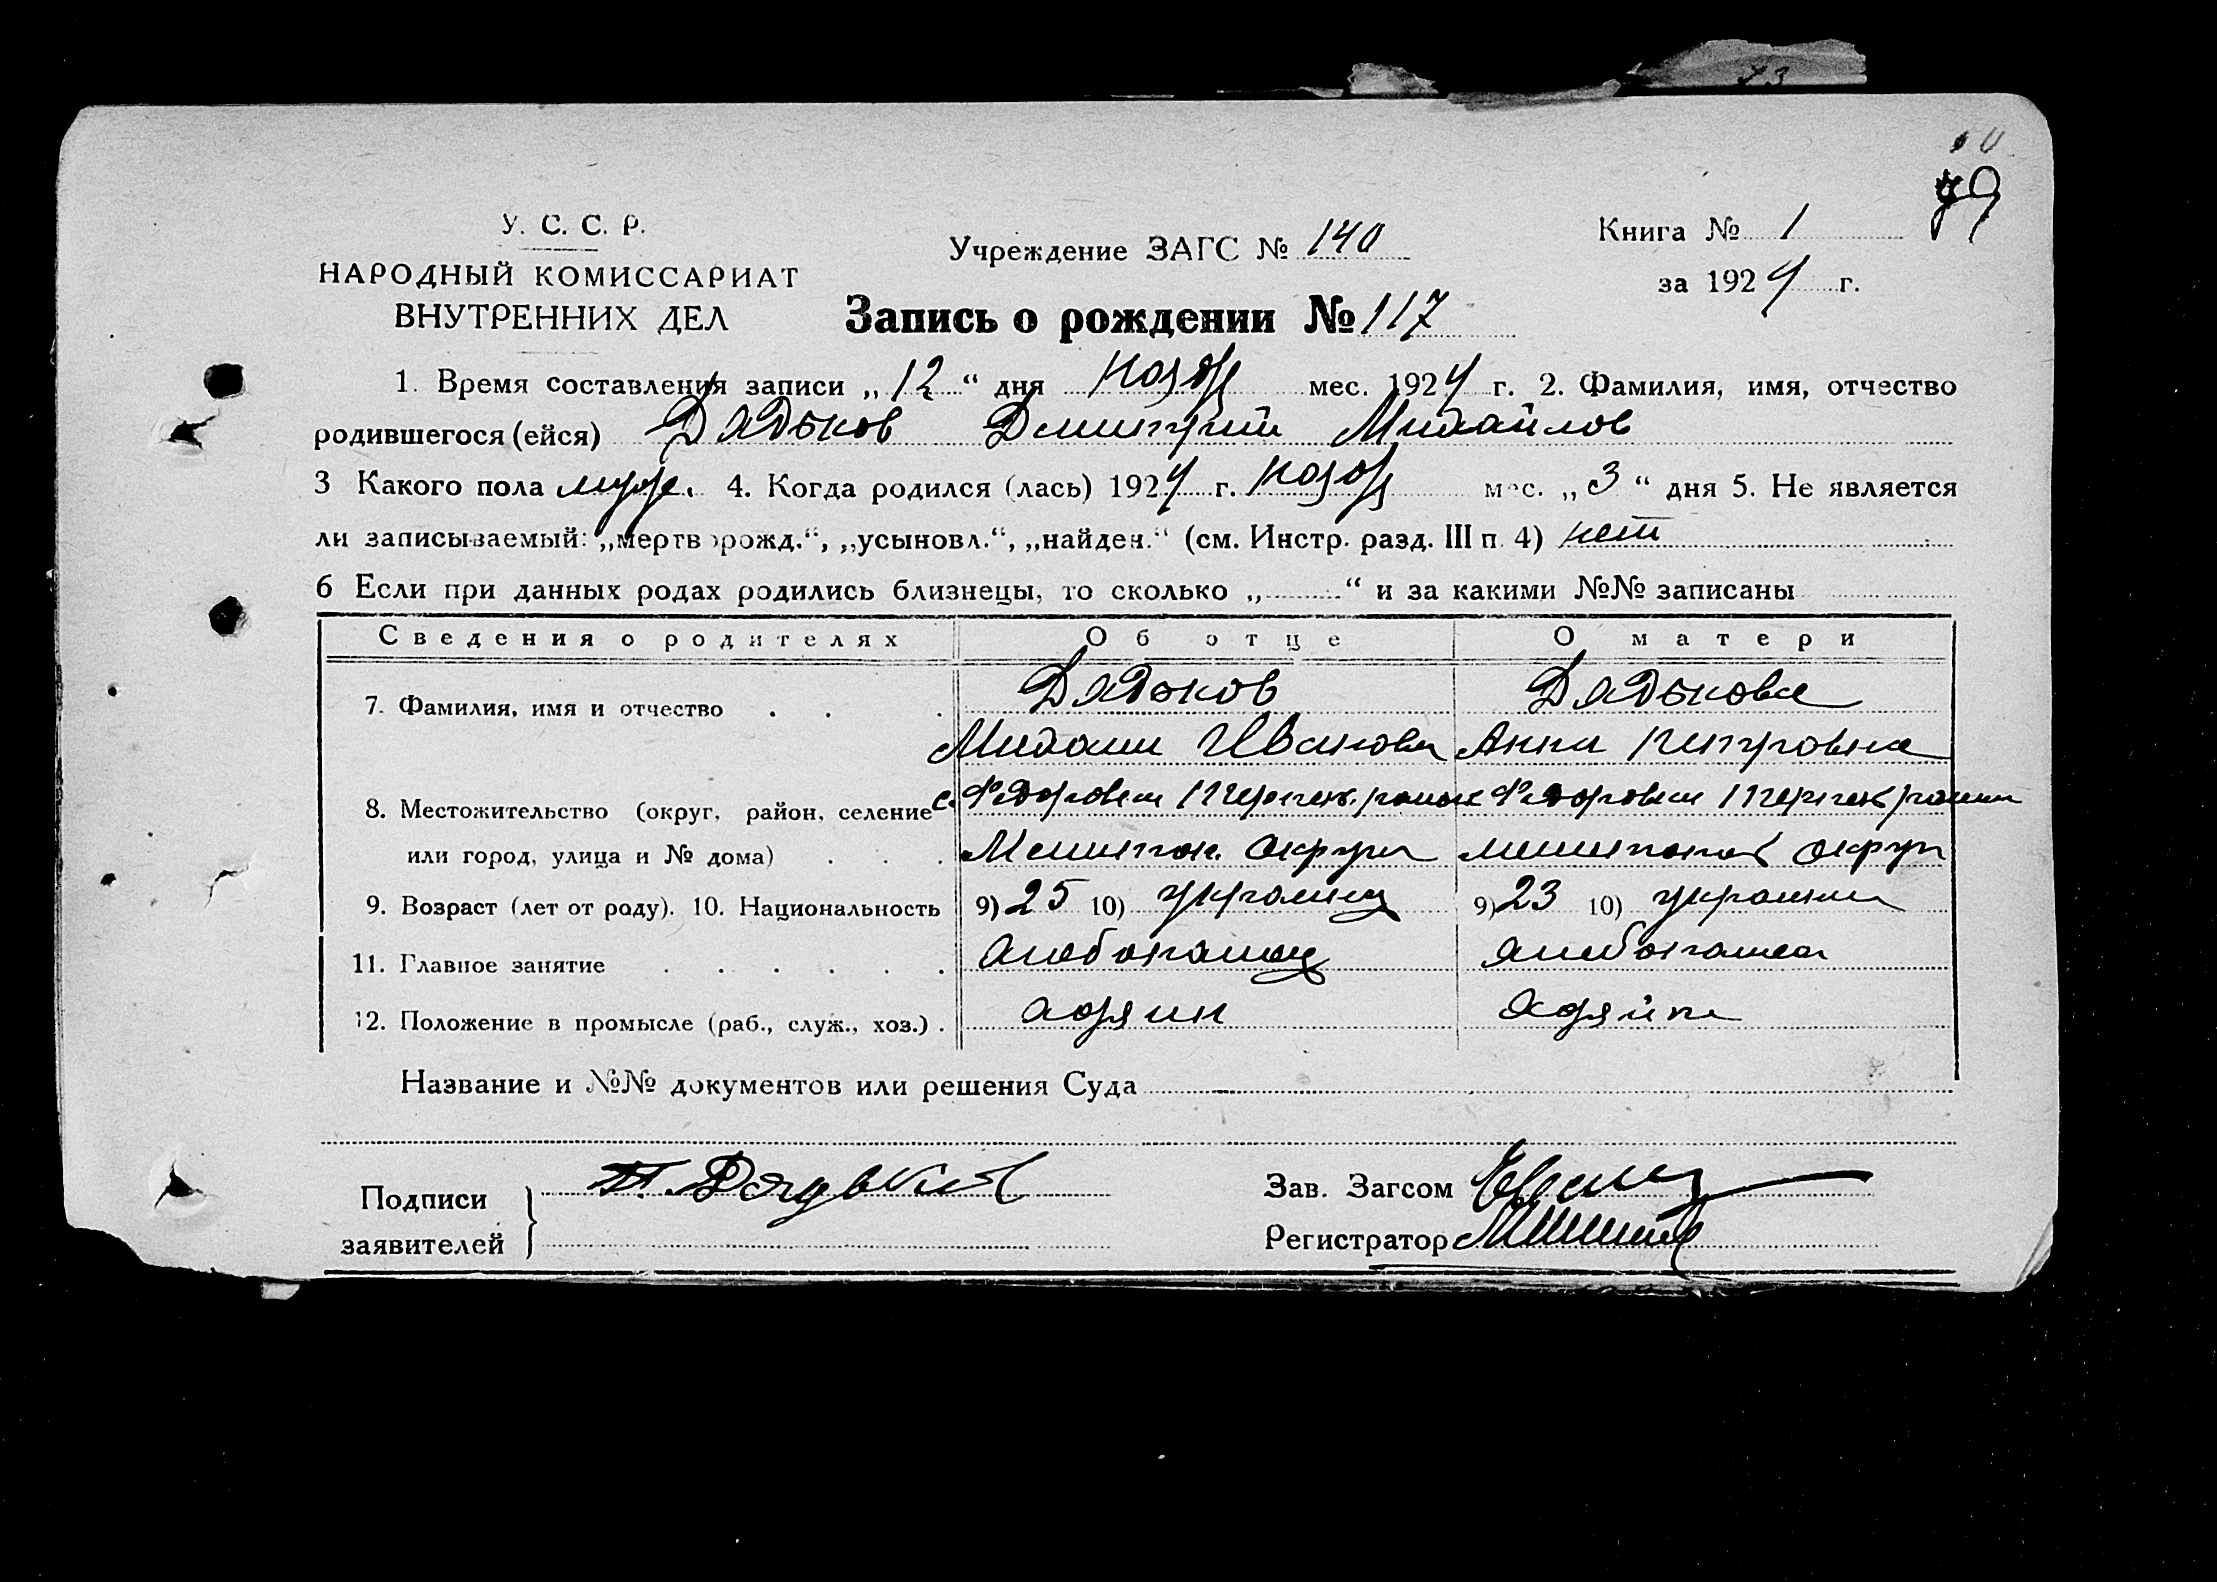 У. С. С. Р.
НАРОДНЫЙ КОМИССАРИАТ
ВНУТРЕННИХ ДЕЛ
Учреждение ЗАГС № 140
Книга № 1
за 1924 г.
Запись о рождении № 117
1. Время составления записи „12“ дня нояб мес. 1924 г. 2. Фамилия, имя, отчество
родившегося (ейся) Дядьков Дмитрий Михайлов
3 Какого пола муж. 4. Когда родился (лась) 1924 г. нояб мес. „3“ дня 5. Не является
ли записываемый: „мертворожд.“, „усыновл.“, „найден.“ (см. Инстр. разд. III п. 4) нет
6 Если при данных родах родились близнецы, то сколько „ “ и за какими №№ записаны
Сведения о родителях Об отце О матери
7. Фамилия, имя и отчество Дядьков Дядькова
Михаил Иванови Анна Петровна
8. Местожительство (округ, район, селение с. район
или город, улица и № дома) округ округ
9. Возраст (лет от роду). 10. Национальность 9) 25 10) украинц 9) 23 10) украинк
11. Главное занятие
12. Положение в промысле (раб., служ., хоз.)
Название и №№ документов или решения Суда
Подписи
заявителей
Зав. Загсом
Регистратор